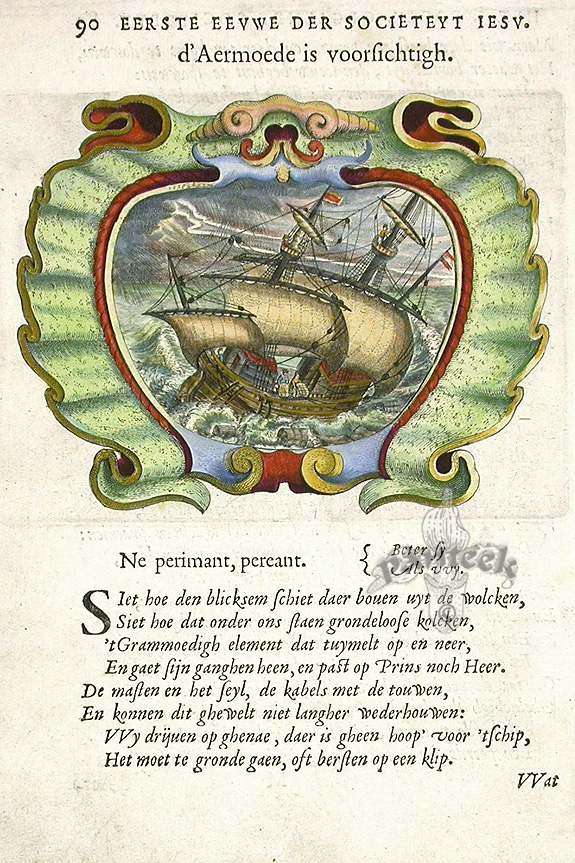 90 EERSTE EEVWE DER SOCIETEYT IESV.
d'Aermoede is voorſichtigh.
Ne perimant, pereant. { Beter ſy
Als vvy.
SIet hoe den blickſem ſchiet daer bouen uyt de wolcken,
Siet hoe dat onder ons ſtaen grondelooſe kolcken,
'tGrammoedigh element dat tuymelt op en neer,
En gaet ſijn ganghen heen, en paſt op Prins noch Heer.
De maſten en het ſeyl, de kabels met de touwen,
En konnen dit ghewelt niet langher wederhouwen:
VVy drijuen op ghenae, daer is gheen hoop' voor 'tſchip,
Het moet te gronde gaen, oft berſten op een klip.
VVat